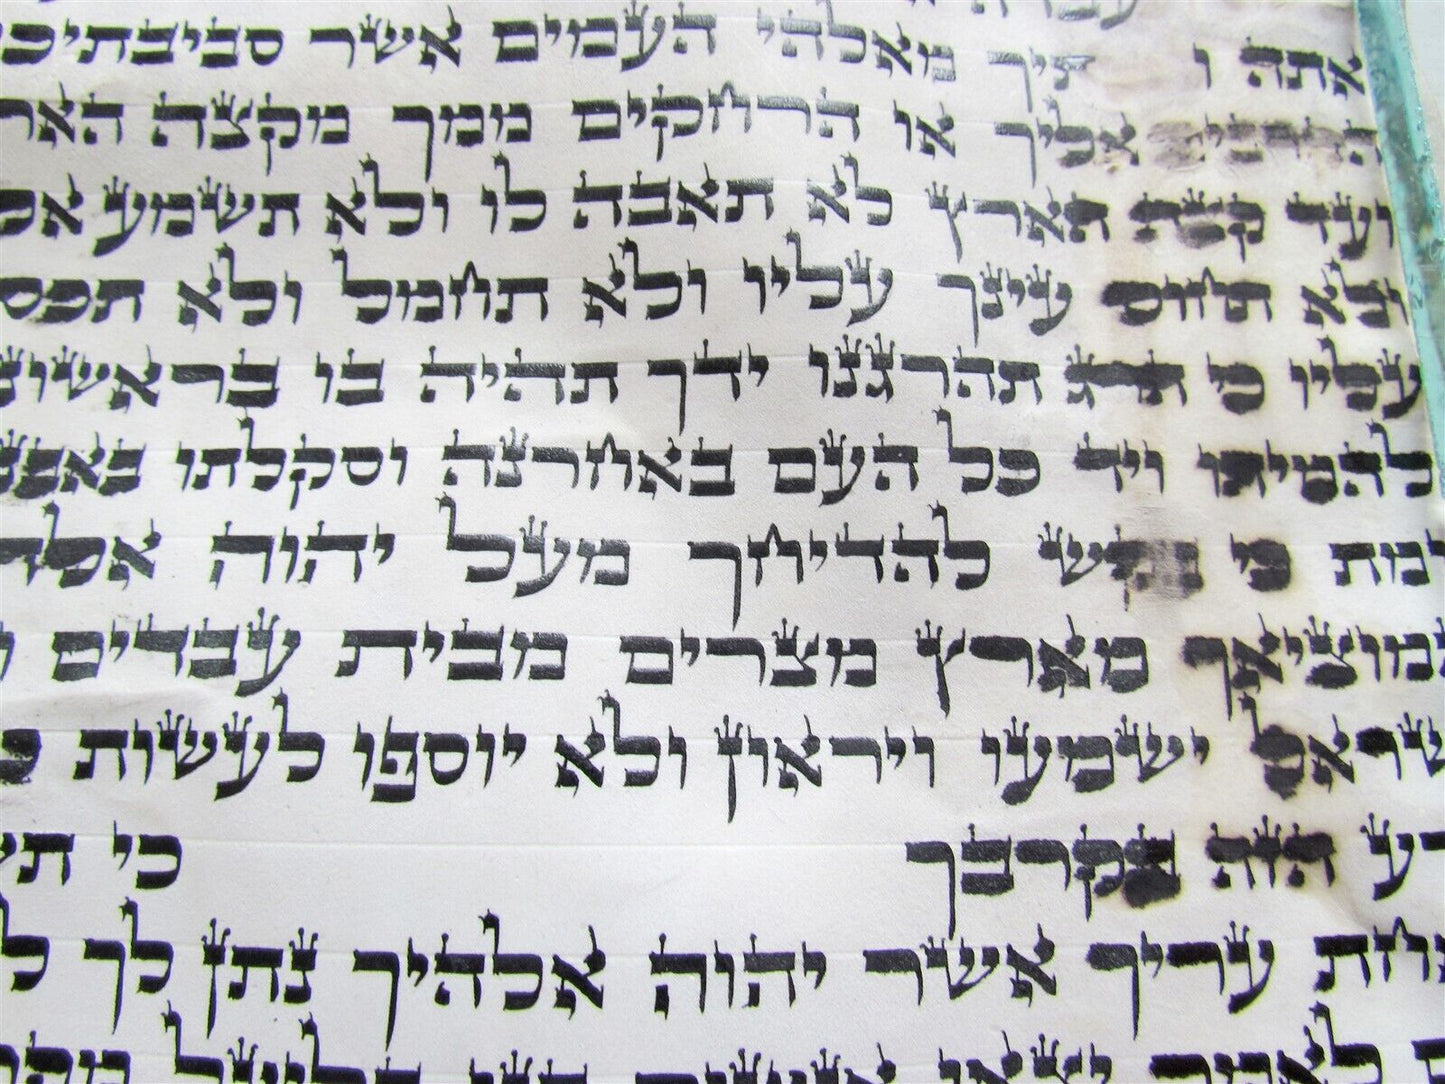 אתה מאלהי העמים אשר סביבתיכ
אליך או הרחקים ממך מקצה האר
ועד קצה הארץ לא תאבה לו ולא תשמע אל
ולא תחוס עינך עליו ולא תחמל ולא תכס
עליו כי הרג תהרגנו ידך תהיה בו בראשונ
להמיתו ויד כל העם באחרנה וסקלתו באבנ
ומת כי בקש להדיחך מעל יהוה אלה
המוציאך מארץ מצרים מבית עבדים
שראל ישמעו ויראון ולא יוספו לעשות כ
רע הזה בקרבך כי תש
אחת עריך אשר יהוה אלהיך נתן לך ל